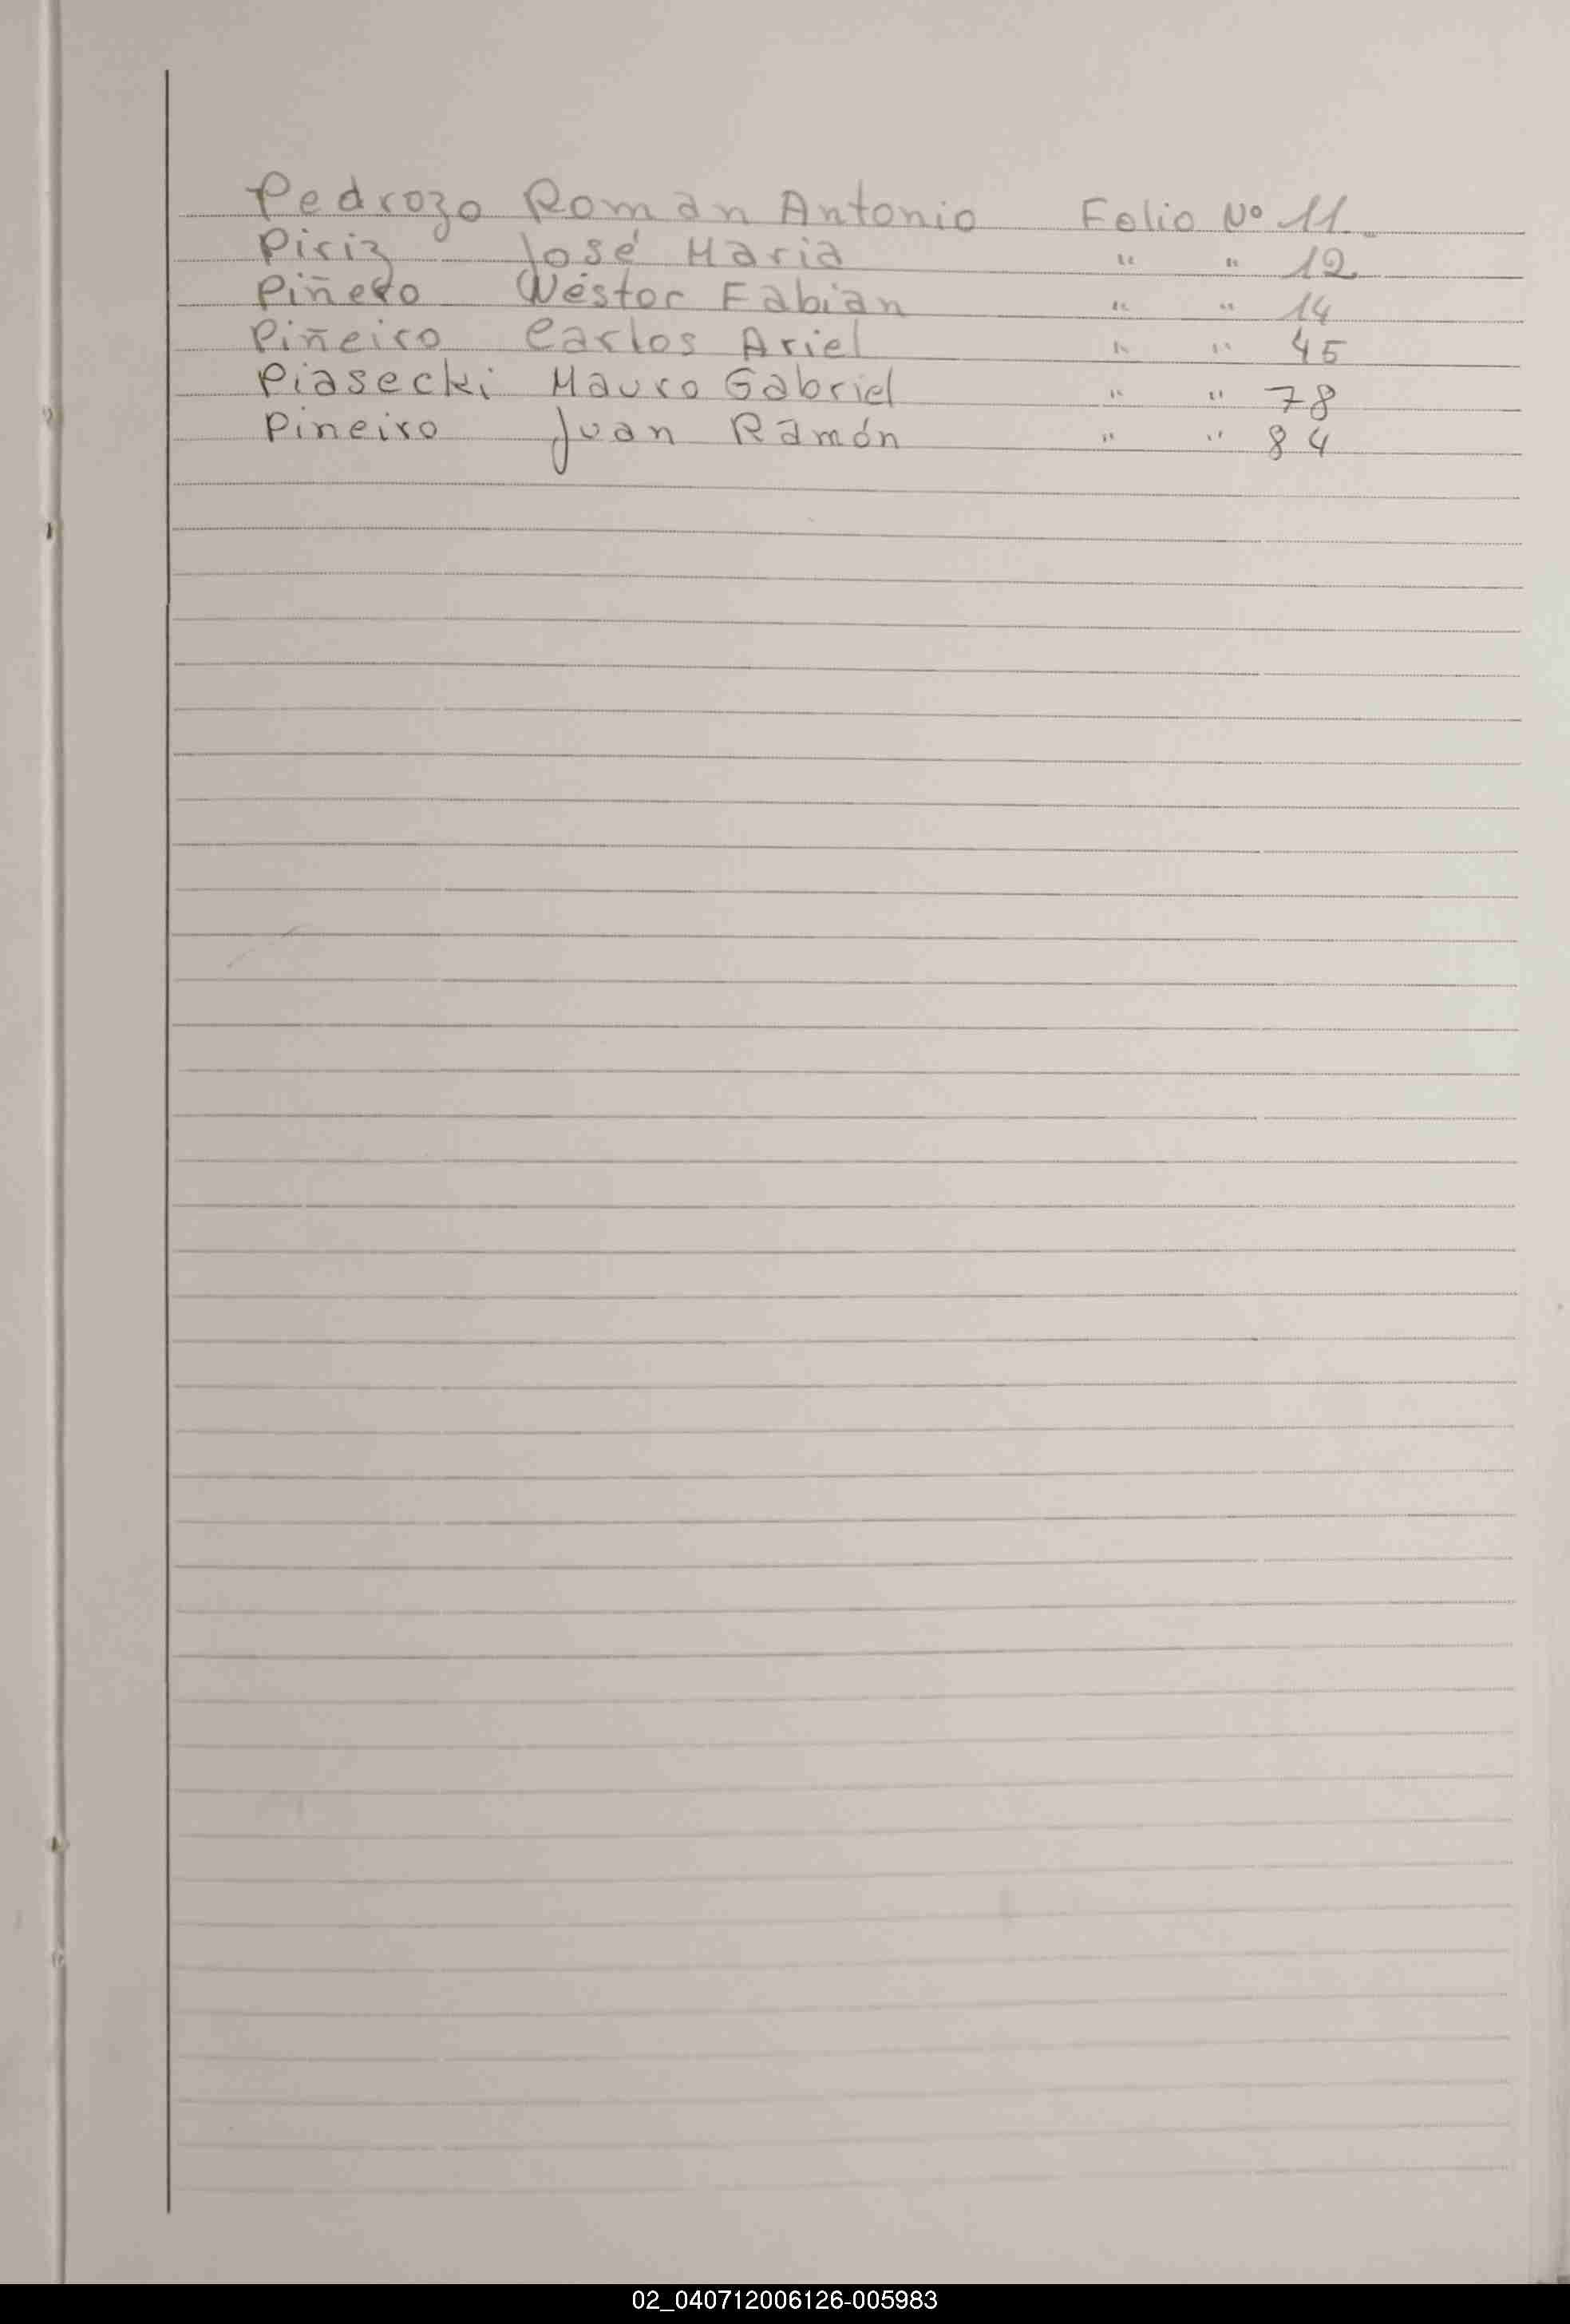 Pedrozo Roman Antonio Folio Nº 11.
Piriz José Maria " " 12
Piñero Wéstor Fabian " " 14
Piñeiro Carlos Ariel " " 45
Piasecki Mauro Gabriel " " 78
Pineiro Juan Ramón " " 84
02_040712006126-005983